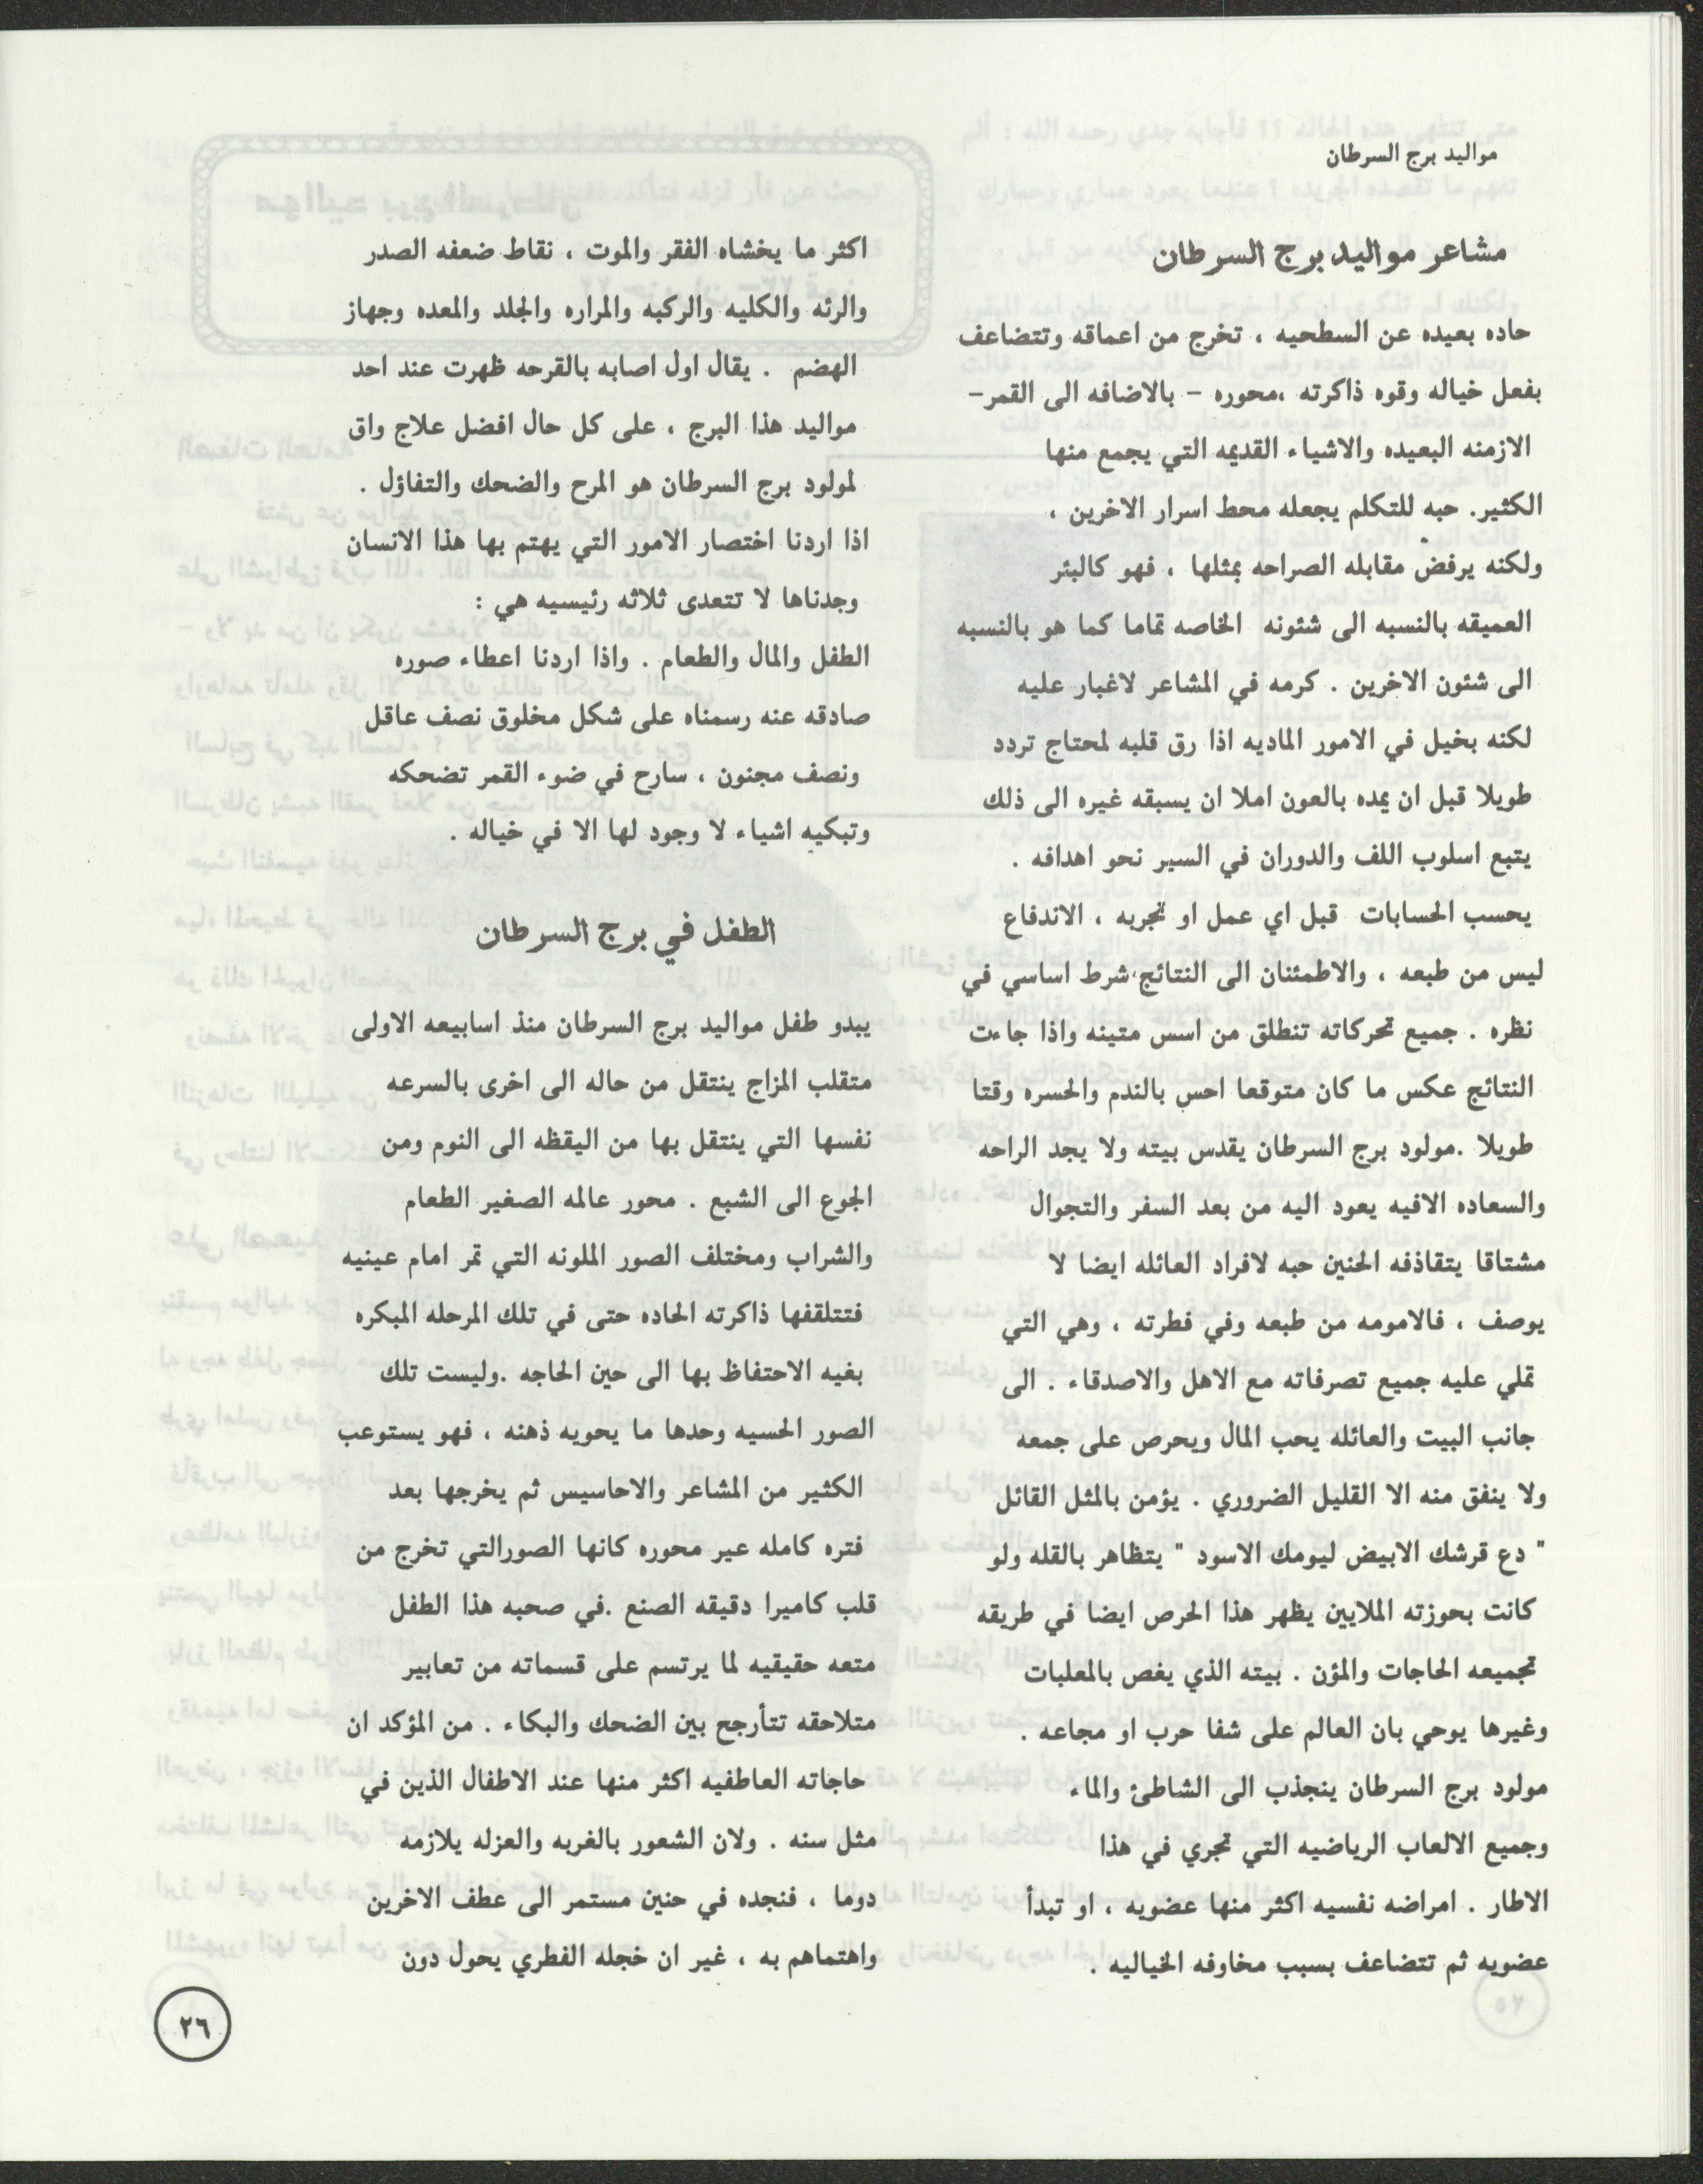 مواليد برج السرطان
مشاعر مواليد برج السرطان
حاده بعيده عن السطحيه ، تخرج من اعماقه وتتضاعف
بفعل خياله وقوه ذاكرته ،محوره – بالاضافه الى القمر–
الازمنه البعيده والاشياء القديمه التي يجمع منها
الكثير. حبه للتكلم يجعله محط اسرار الاخرين ،
ولكنه يرفض مقابله الصراحه بمثلها ، فهو كالبئر
العميقه بالنسبه الى شئونه الخاصه تماما كما هو بالنسبه
الى شئون الاخرين . كرمه في المشاعر لاغبار عليه
لكنه بخيل في الامور الماديه اذا رق قلبه لمحتاج تردد
طويلا قبل ان يمده بالعون املا ان يسبقه غيره الى ذلك
يتبع اسلوب اللف والدوران في السير نحو اهدافه .
يحسب الحسابات قبل اي عمل او تجربه ، الاندفاع
ليس من طبعه ، والاطمئنان الى النتائج،شرط اساسي في
نظره . جميع تحركاته تنطلق من اسس متينه واذا جاءت
النتائج عكس ما كان متوقعا احس بالندم والحسره وقتا
طويلا .مولود برج السرطان يقدس بيته ولا يجد الراحه
والسعاده الافيه يعود اليه من بعد السفر والتجوال
مشتاقا يتقاذفه الحنين حبه لافراد العائله ايضا لا
يوصف ، فالامومه من طبعه وفي فطرته ، وهي التي
تملي عليه جميع تصرفاته مع الاهل والاصدقاء . الى
جانب البيت والعائله يحب المال ويحرص على جمعه
ولا ينفق منه الا القليل الضروري . يؤمن بالمثل القائل
" دع قرشك الابيض ليومك الاسود " يتظاهر بالقله ولو
كانت بحوزته الملايين يظهر هذا الحرص ايضا في طريقه
تجميعه الحاجات والمؤن . بيته الذي يغص بالمعلبات
وغيرها يوحي بان العالم على شفا حرب او مجاعه .
مولود برج السرطان ينجذب الى الشاطئ والماء
وجميع الالعاب الرياضيه التي تجري في هذا
الاطار . امراضه نفسيه اكثر منها عضويه ، او تبدأ
عضويه ثم تتضاعف بسبب مخاوفه الخياليه .
اكثر ما يخشاه الفقر والموت ، نقاط ضعفه الصدر
والرئه والكليه والركبه والمراره والجلد والمعده وجهاز
الهضم . يقال اول اصابه بالقرحه ظهرت عند احد
مواليد هذا البرج ، على كل حال افضل علاج واق
لمولود برج السرطان هو المرح والضحك والتفاؤل .
اذا اردنا اختصار الامور التي يهتم بها هذا الانسان
وجدناها لا تتعدى ثلاثه رئيسيه هي :
الطفل والمال والطعام . واذا اردنا اعطاء صوره
صادقه عنه رسمناه على شكل مخلوق نصف عاقل
ونصف مجنون ، سارح في ضوء القمر تضحكه
وتبكيه اشياء لا وجود لها الا في خياله .
الطفل في برج السرطان
يبدو طفل مواليد برج السرطان منذ اسابيعه الاولى
متقلب المزاج ينتقل من حاله الى اخرى بالسرعه
نفسها التي ينتقل بها من اليقظه الى النوم ومن
الجوع الى الشبع . محور عالمه الصغير الطعام
والشراب ومختلف الصور الملونه التي تمر امام عينيه
فتتلقفها ذاكرته الحاده حتى في تلك المرحله المبكره
بغيه الاحتفاظ بها الى حين الحاجه .وليست تلك
الصور الحسيه وحدها ما يحويه ذهنه ، فهو يستوعب
الكثير من المشاعر والاحاسيس ثم يخرجها بعد
فتره كامله عير محوره كانها الصورالتي تخرج من
قلب كاميرا دقيقه الصنع .في صحبه هذا الطفل
متعه حقيقيه لما يرتسم على قسماته من تعابير
متلاحقه تتأرجح بين الضحك والبكاء . من المؤكد ان
حاجاته العاطفيه اكثر منها عند الاطفال الذين في
مثل سنه . ولان الشعور بالغربه والعزله يلازمه
دوما ، فنجده في حنين مستمر الى عطف الاخرين
واهتماهم به ، غير ان خجله الفطري يحول دون
٢٦